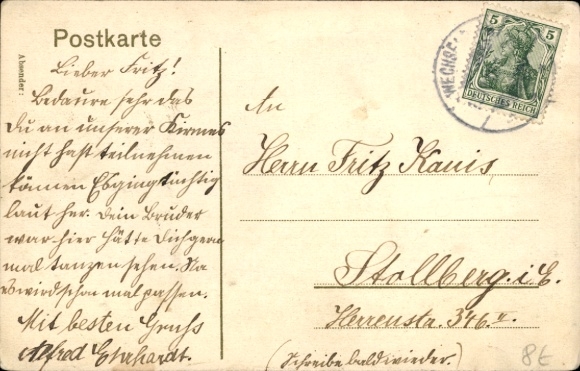 Postkarte
Absender:
Lieber Fritz!
Bedaure sehr das
Du an unserer Kirmes
nicht hast teilnehmen
können Es ging tüchtig
laut her. Dein Bruder
war hier hätte Dich gern
mal tanzen sehen. Na
es wird schon mal passen.
Mit besten Gruss
Alfred Ehrhardt.
5 5
DEUTSCHES REICH
An
Herrn Fritz Kanis
Stollberg. i. E.
Herrenstr. 346
(Schreibe bald wieder.)
8E